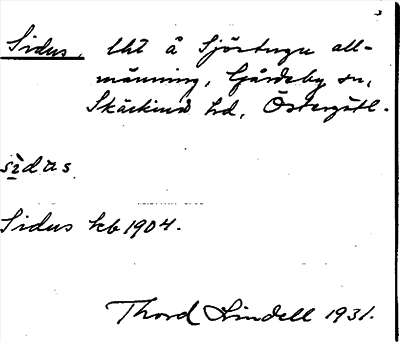 Sidus, lht å Sjörtuge all-
männing, Gårdeby sn,
Skärkinds hd, Östergötl.
sìdus
Sidus kb 1904.
Thord Lindell 1931.